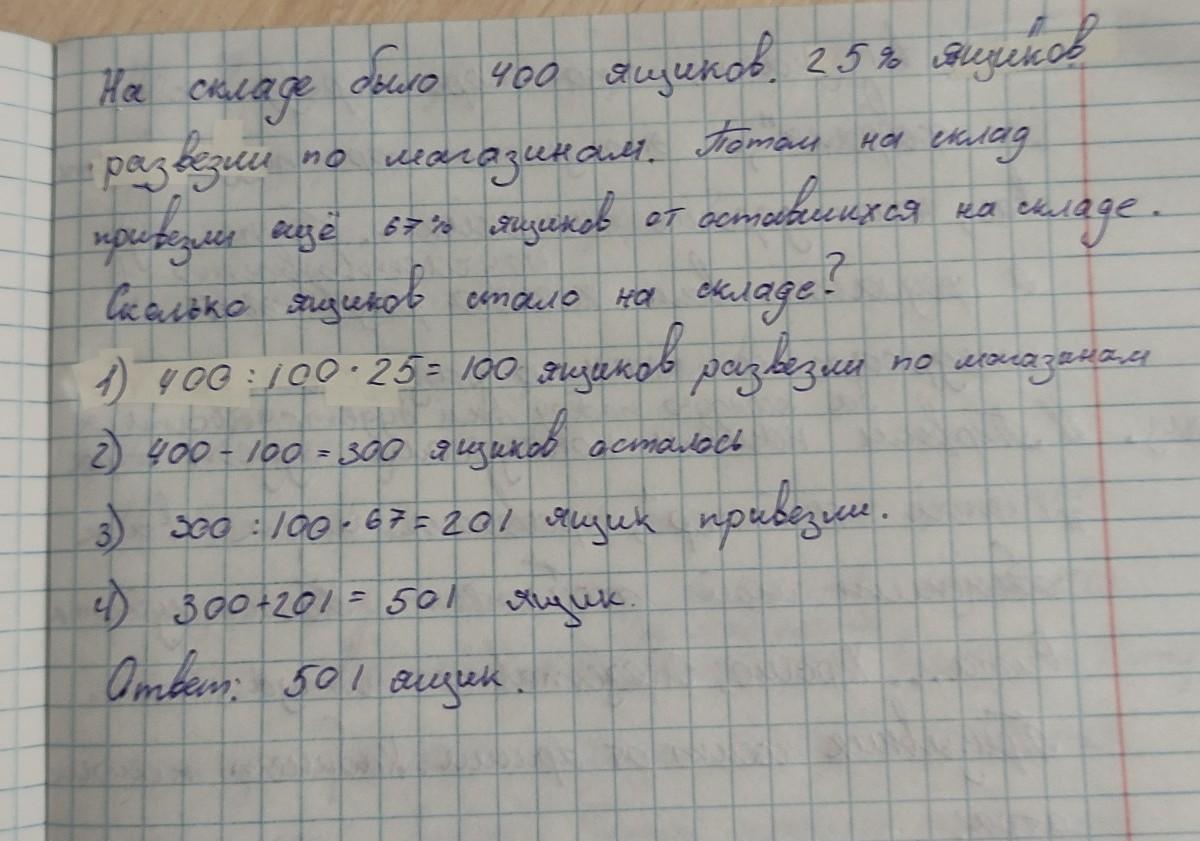 На складе было 400 ящиков. 25% ящиков
развезли по магазинам. Потом на склад
привезли ещё 67% ящиков от оставшихся на складе.
Сколько ящиков стало на складе?
1) 400 : 100 · 25 = 100 ящиков развезли по магазинам
2) 400 - 100 = 300 ящиков осталось
3) 300 : 100 · 67 = 201 ящик привезли.
4) 300 + 201 = 501 ящик.
Ответ: 501 ящик.